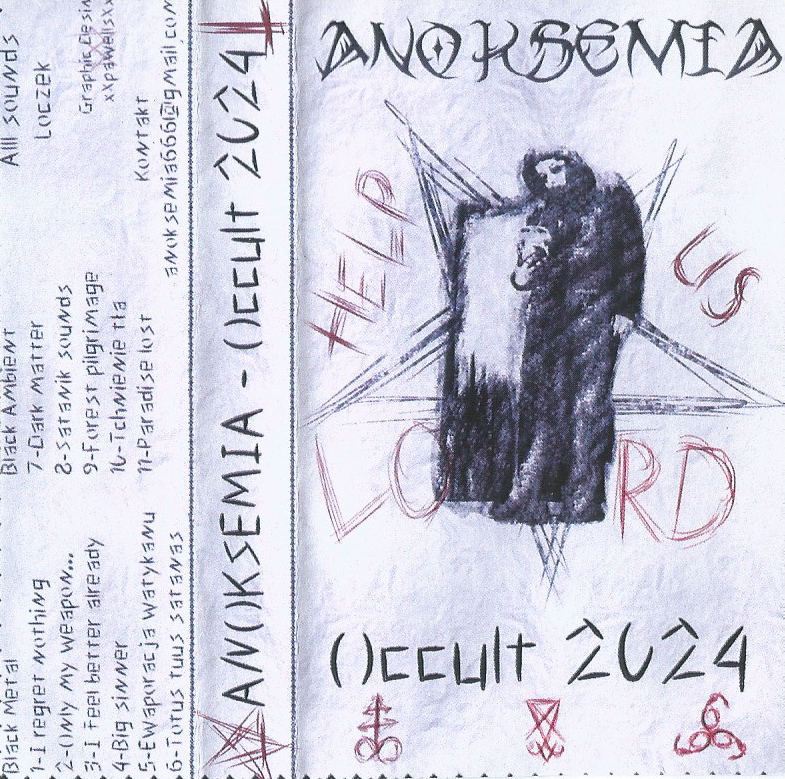 Black Metal
1-I regret nothing
2-Only my weapon...
3-I feel better already
4-Big sinner
5-EWaporacja watykanu
6-Totus tuus satanas
Black Ambient
7-Dark Matter
8-Satanik sounds
9-Forest pilgrimage
10-Tchnienie tła
11-Paradise lost
Alll sounds
Loczek
Graphic Desin
xxpawellsxx
Kontakt
anoksemia666@gmail.com
ANOKSEMIA - Occult 2024
ANOKSEMIA
HELP
US
LORD
Occult 2024